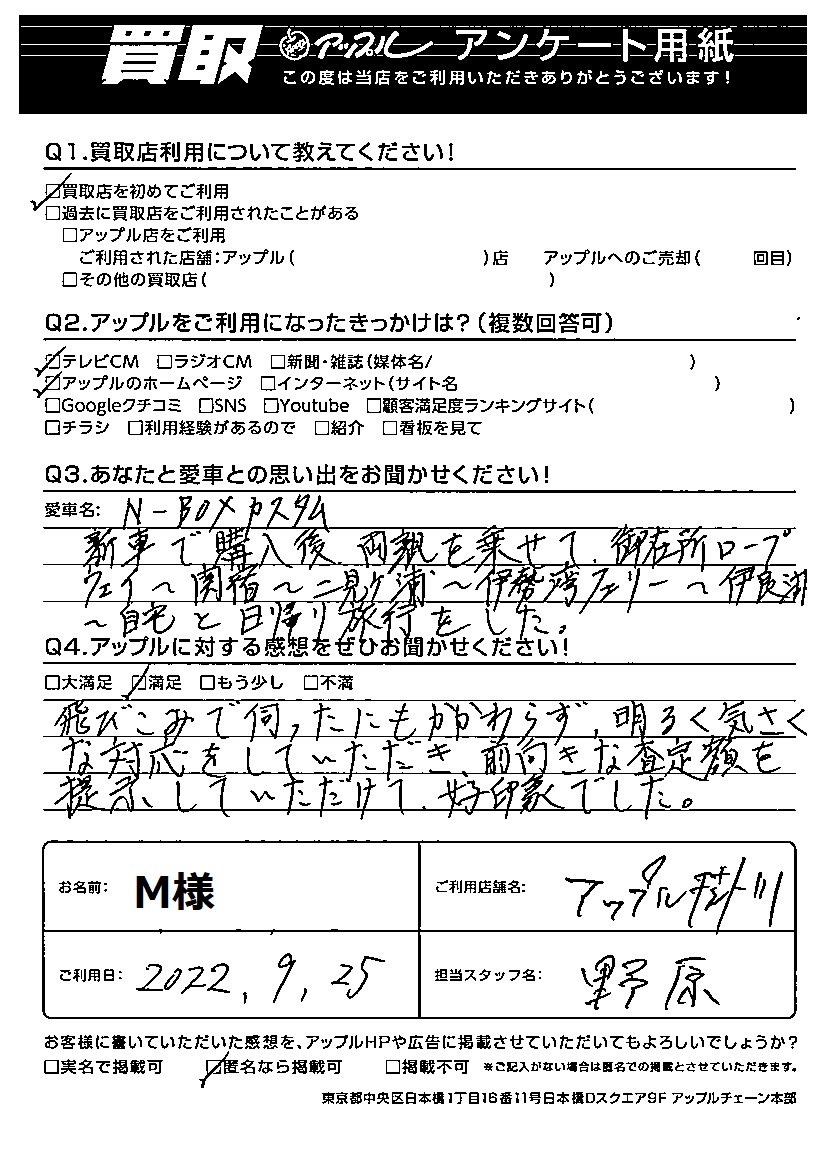 買取 アップル アンケート用紙
この度は当店をご利用いただきありがとうございます!
Q1.買取店利用について教えてください!
☑買取店を初めてご利用
□過去に買取店をご利用されたことがある
□アップル店をご利用
ご利用された店舗:アップル( )店 アップルへのご売却( 回目)
□その他の買取店( )
Q2.アップルをご利用になったきっかけは?(複数回答可)
☑テレビCM □ラジオCM □新聞・雑誌(媒体名/ )
☑アップルのホームページ □インターネット(サイト名 )
□Googleクチコミ □SNS □Youtube □顧客満足度ランキングサイト( )
□チラシ □利用経験があるので □紹介 □看板を見て
Q3.あなたと愛車との思い出をお聞かせください!
愛車名: N-BOXカスタム
新車で購入後、両親を乗せて、御在所ロープ
ウェイ~関宿~二見ヶ浦~伊勢湾フェリー~伊良湖
~自宅と日帰り旅行をした。
Q4.アップルに対する感想をぜひお聞かせください!
□大満足 ☑満足 □もう少し □不満
飛びこみで伺ったにもかかわらず、明るく気さく
な対応をしていただき、前向きな査定額を
提示していただけて、好印象でした。
お名前: M様 ご利用店舗名: アップル掛川
ご利用日: 2022,9,25 担当スタッフ名: 野原
お客様に書いていただいた感想を、アップルHPや広告に掲載させていただいてもよろしいでしょうか?
□実名で掲載可 ☑匿名なら掲載可 □掲載不可 ※ご記入がない場合は匿名での掲載とさせていただきます。
東京都中央区日本橋1丁目16番11号日本橋Dスクエア9F アップルチェーン本部